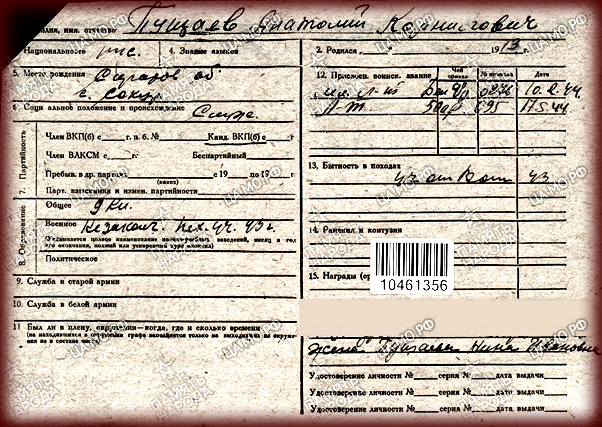 Фамилия, имя, отчество Пушаев Анатолий Корнилович
Национальность рус. 4. Знание языков
2. Родился 1913 г.
5. Место рождения Саратов об
с. Сокур
6. Социальное положение и происхождение Служ.
7. Партийность
Член ВКП(б) с г. п. б. № Канд. ВКП(б) с г.
Член ВЛКСМ с Беспартийный
Пребыв. в др. партиях с 19 по 19 г.
(каких)
Парт. взыскания и измен. партийности
8. Образование
Общее 9 кл.
Военное Незаконч. пех. уч. 43 г.
(Указывается полное наименование военно-учебных заведений, месяц и год
его окончания, полный или ускоренный курс окончил)
Политическое
9. Служба в старой армии
10. Служба в белой армии
11 Был ли в плену, окружении—когда, где и сколько времени
(на находившихся в окружении графа заполняется только на выходивших из окружения
не в составе части)
12. Присвоен. воинск. звание Чей приказ № приказа Дата
мл. л-т 0276 10.2.44
Л-т 695 17.5.44
13. Бытность в походах
43
14. Ранения и контузии
15. Награды
10461356
жена Нина Ивановна
Удостоверение личности № серия № дата выдачи
Удостоверение личности № серия № дата выдачи
Удостоверение личности № серия № дата выдачи
ПАМЯТЬ НАРОДА
ЦАМО.РФ